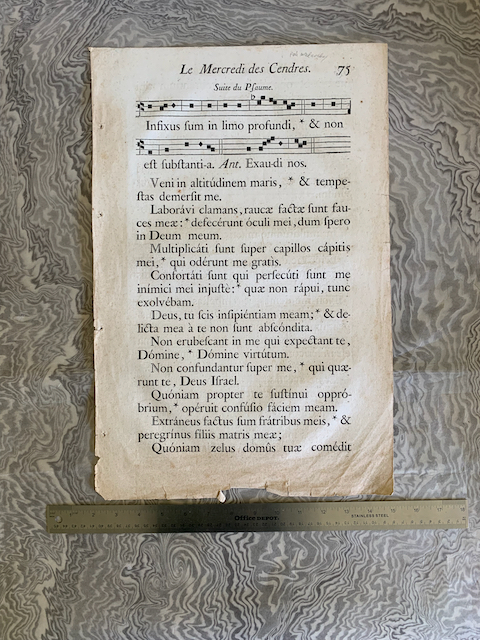 Le Mercredi des Cendres. 75
Suite du Pſaume.
Infixus ſum in limo profundi, * & non
eſt ſubſtanti-a. Ant. Exau-di nos.
Veni in altitúdinem maris, * & tempe-
ſtas demerſit me.
Laborávi clamans, raucæ factæ ſunt fau-
ces meæ: * defecérunt óculi mei, dum ſpero
in Deum meum.
Multiplicáti ſunt ſuper capillos cápitis
mei, * qui odérunt me gratis.
Confortáti ſunt qui perſecúti ſunt me
inimíci mei injuſtè: * quæ non rápui, tunc
exolvébam.
Deus, tu ſcis inſipiéntiam meam; * & de-
licta mea à te non ſunt abſcóndita.
Non erubeſcant in me qui expectant te,
Dómine, * Dómine virtútum.
Non confundantur ſuper me, * qui quæ-
runt te, Deus Iſrael.
Quóniam propter te ſuſtínui oppró-
brium, * opéruit confúſio fáciem meam.
Extráneus factus ſum frátribus meis, * &
peregrínus filiis matris meæ;
Quóniam zelus domûs tuæ comédit
OFFICE DEPOT.
STAINLESS STEEL